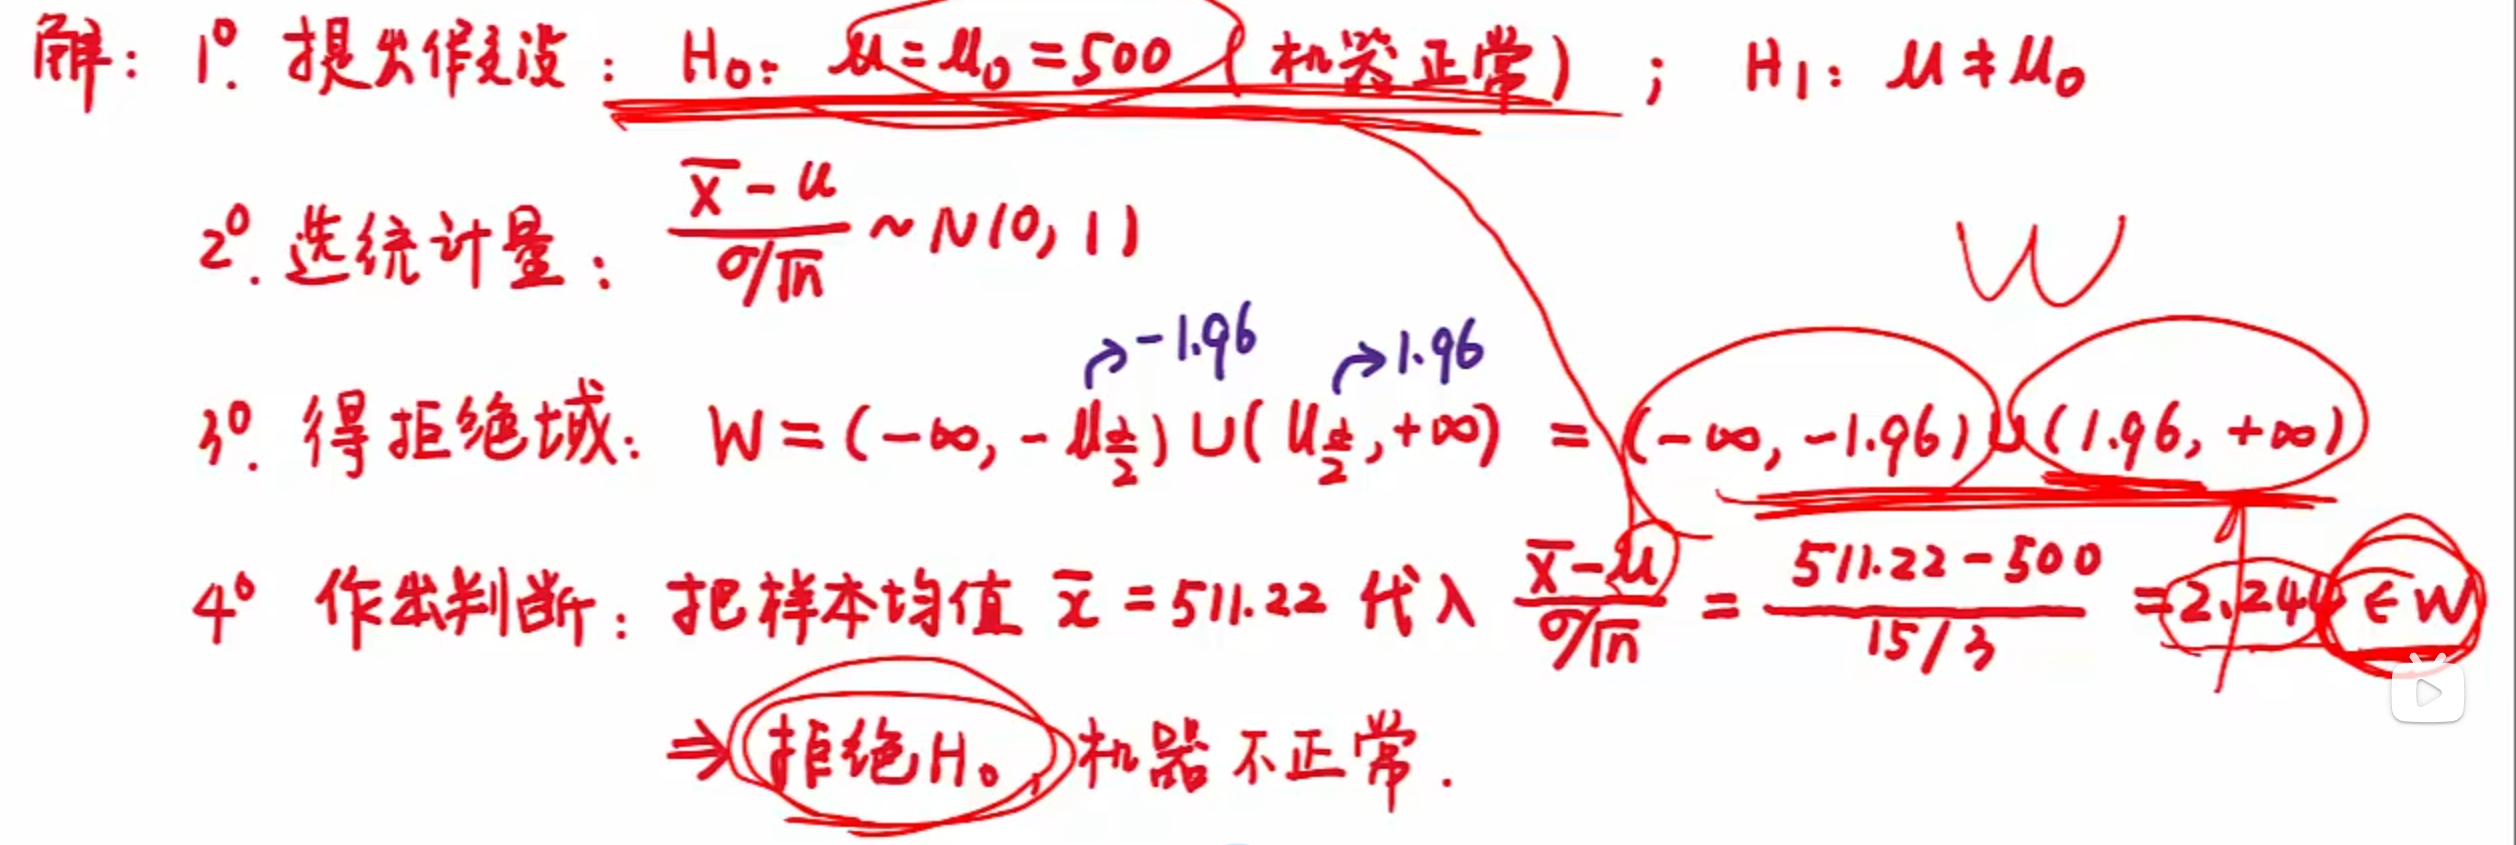 解: 1°. 提出假设: H₀: μ=μ₀=500 (机器正常) ; H₁: μ≠μ₀
2°. 选统计量: (x̄-μ)/(σ/√n) ~ N(0,1)
W
→ -1.96 → 1.96
3°. 得拒绝域: W=(-∞, -μ_{α/2})∪(μ_{α/2}, +∞) = (-∞, -1.96)∪(1.96, +∞)
4° 作出判断: 把样本均值 x̄=511.22 代入 (x̄-μ)/(σ/√n) = (511.22-500)/(15/3) = 2.244 ∈ W
⇒ 拒绝H₀, 机器不正常.